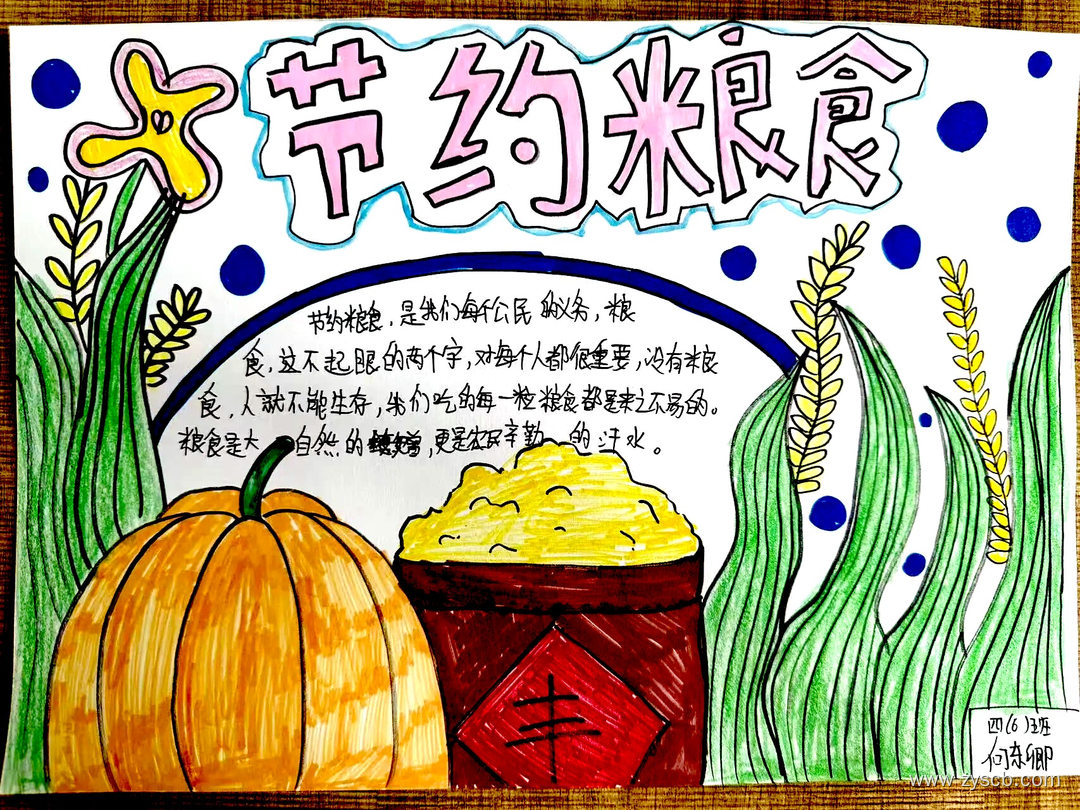 节约粮食
节约粮食，是我们每个公民的义务，粮
食，这不起眼的两个字，对每个人都很重要，没有粮
食，人就不能生存，我们吃的每一粒粮食都是来之不易的。
粮食是大自然的，更是农民辛勤的汗水。
丰
四(6)班
www.zyscb.com